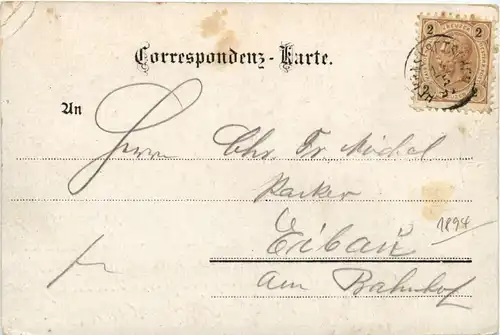 2 2
Correspondenz-Karte.
An
Herrn Chr. Fr. Michel
Eibau
1898
am Bahnhof